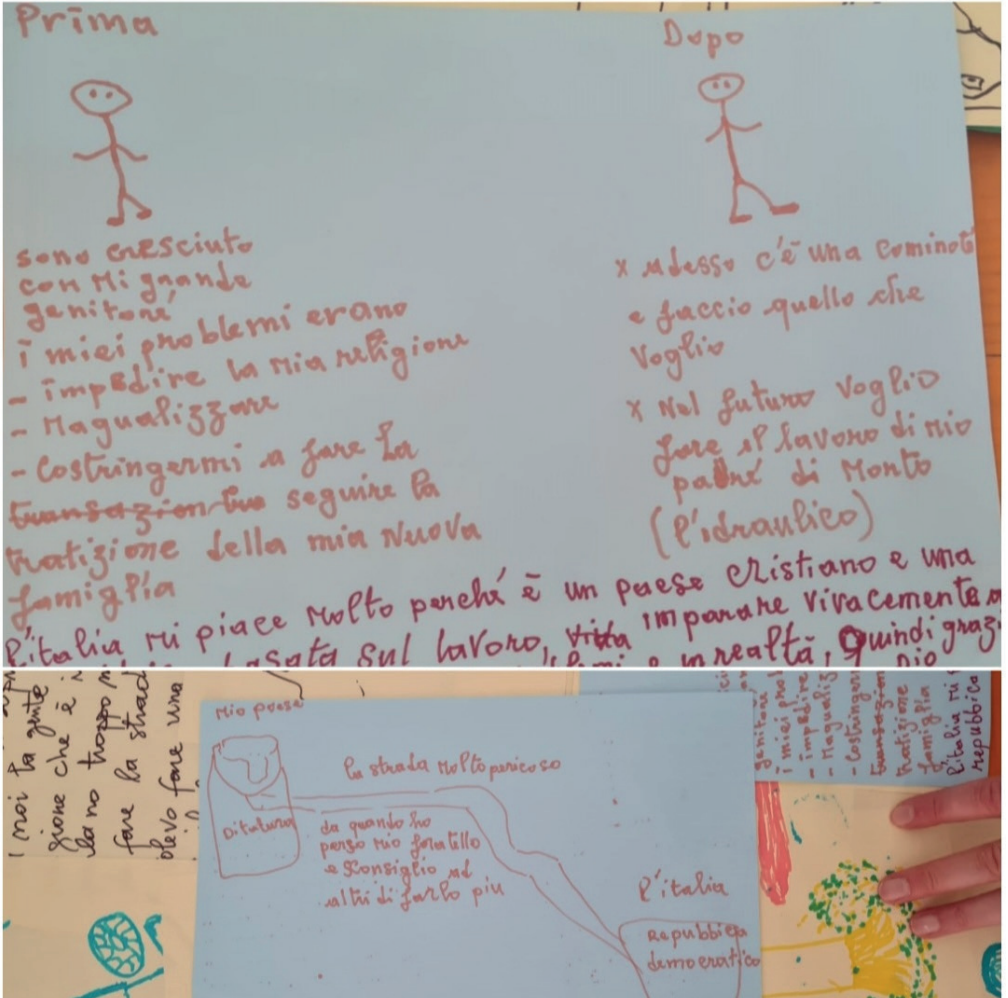 Prima
Dopo
sono cresciuto
con Mi grande
genitore
i miei problemi erano
- impedire la Mia religione
- Magualizzare
- Costringermi a fare la
seguire la
tratizione della mia Nuova
famiglia
x adesso c'è una cominot
e faccio quello che
Voglio
x Nel futuro Voglio
fare il lavoro di Mio
padre di Monto
(l'idraulico)
l'italia Mi piace Molto perché è un paese cristiano e una
basata sul lavoro, imparare vivacemente
in realtà, Quindi grazi
Dio
Mio paese
Ditatura
la strada Molto pericoso
da quando ho
perso Mio fratello
e sconsiglio ad
altri di farlo piu
l'italia
Repubblica
democratico
noi la gente
gione che è
lano troppo
fare la strad
olevo fare una
genitore
i miei pro
- impedire
- Magualiz
- Costringer
tratizione
famiglia
l'italia Mi
repubblica